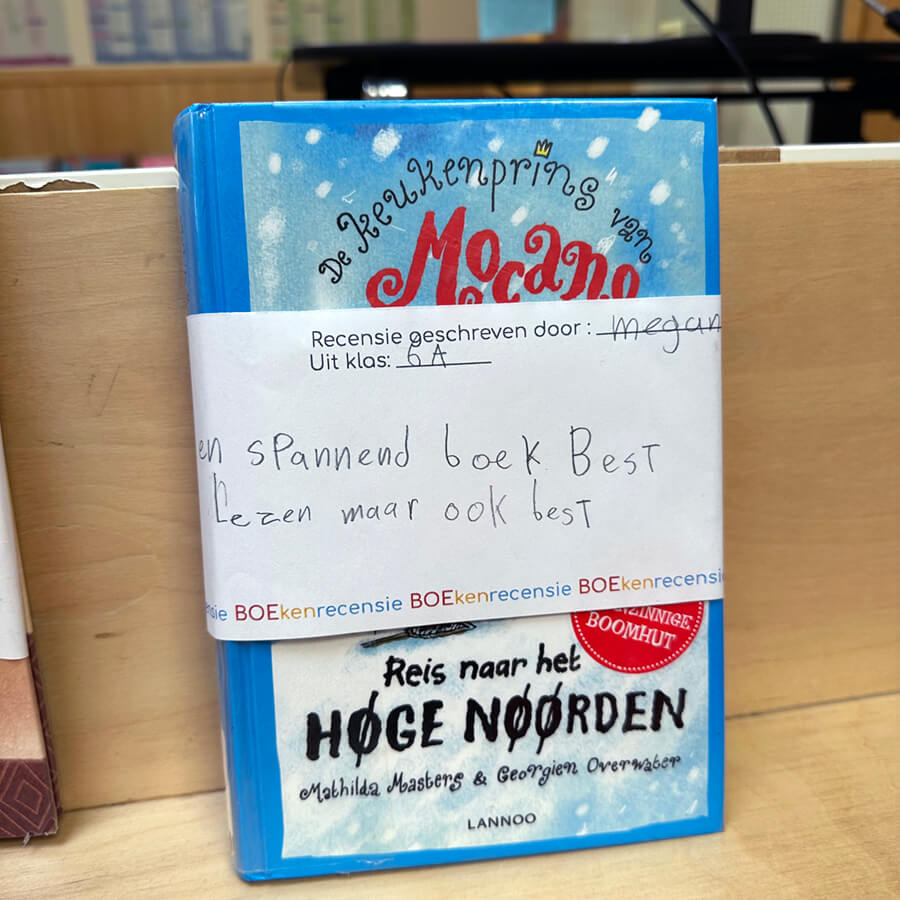 De keukenprins van
Mocano
Recensie geschreven door: megan
Uit klas: 6A
en spannend boek Best
Lezen maar ook best
BOEkenrecensie BOEkenrecensie
BOOMHUT
Reis naar het
HØGE NØØRDEN
Mathilda Masters & Georgien Overwater
LANNOO